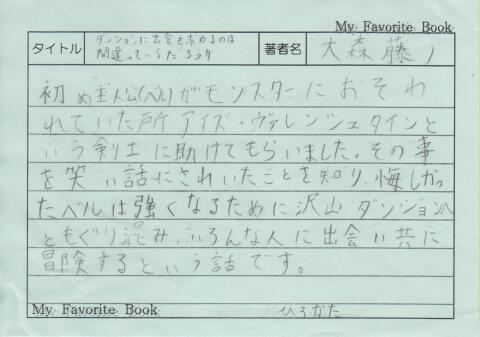 My Favorite Book
タイトル
ダンジョンに出会を求めるのは
間違っているだろうか
著者名
大森藤ノ
初め主人公(ベル)がモンスターにおそわ
れていた所アイズ・ヴァレンシュタインと
いう剣士に助けてもらいました。その事
を笑い話にされいたことを知り、悔しかっ
たベルは強くなるために沢山ダンジョンへ
ともぐり混み、いろんな人に出会い共に
冒険するという話です。
My Favorite Book
ひろかた